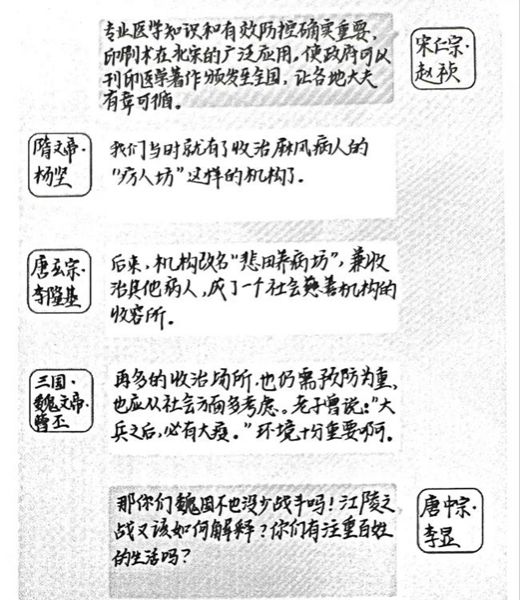 专业医学知识和有效防控确实重要,
印刷术在北宋的广泛应用,使政府可以
刊印医学著作颁发至全国,让各地大夫
有章可循。
宋仁宗·
赵祯
隋文帝·
杨坚
我们当时就有了收治麻风病人的
“疠人坊”这样的机构了。
唐玄宗·
李隆基
后来,机构改名“悲田养病坊”,兼收
治其他病人,成了一个社会慈善机构的
收容所。
三国·
魏文帝·
曹丕
再多的收治场所,也仍需预防为重,
也应从社会方面多考虑。老子曾说:“大
兵之后,必有大疫。”环境十分重要啊。
那你们魏国不也没少战斗吗!江陵之
战又该如何解释?你们有注重百姓
的生活吗?
唐中宗·
李显